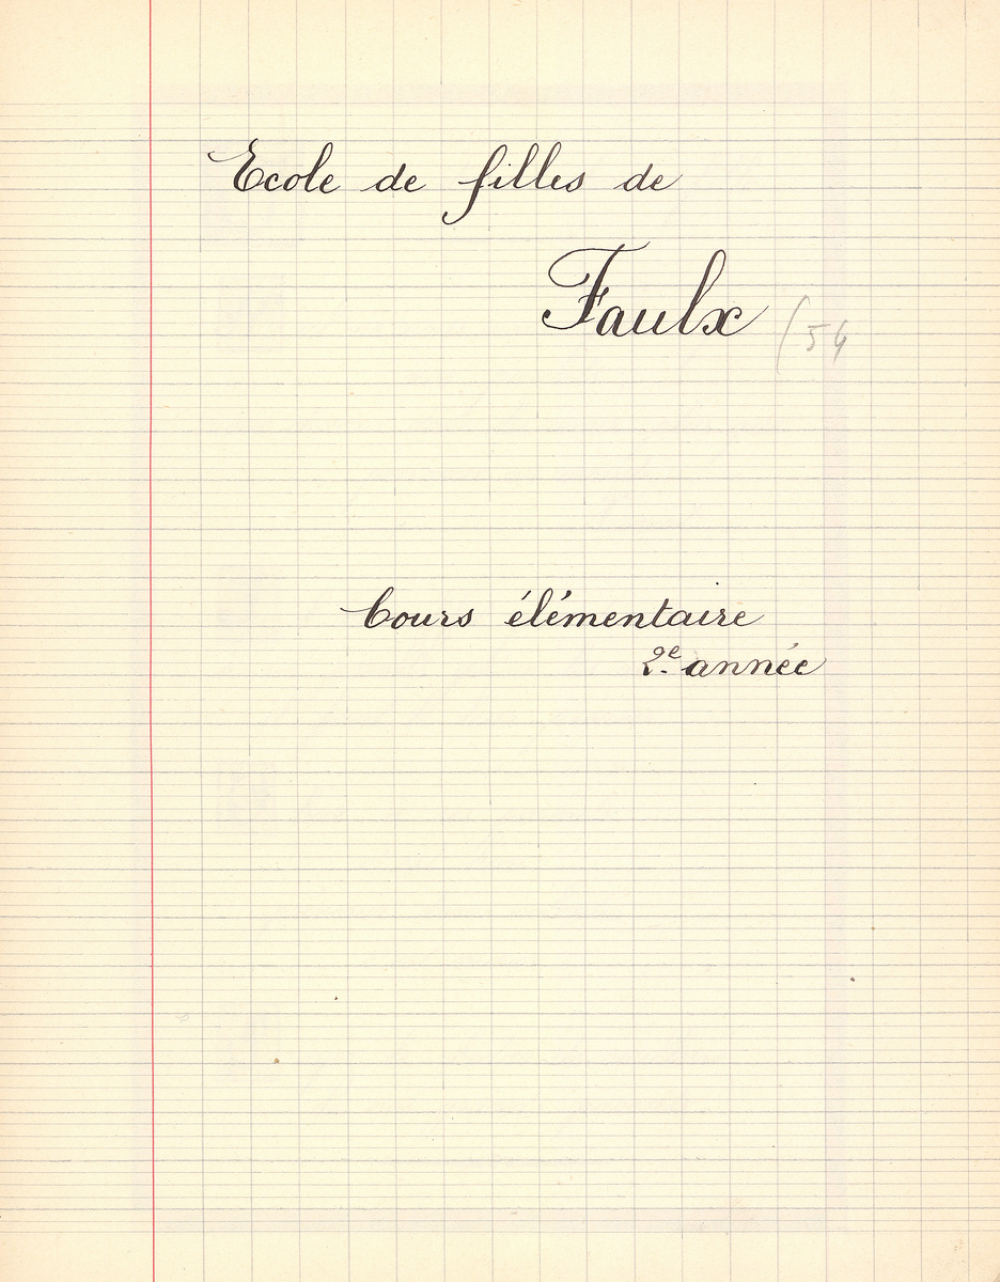 Ecole de filles de
Faulx (54
Cours élémentaire
2e année